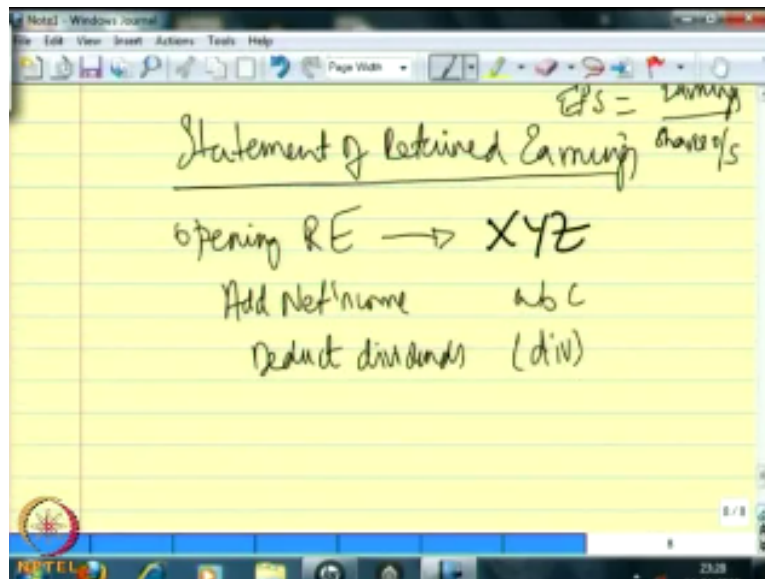 Note1 - Windows Journal
File Edit View Insert Actions Tools Help
Page Width
EPS = Earnings
Shares o/s
Statement of Retained Earnings
Opening RE → XYZ
Add Net income abc
Deduct dividends (div)
8/8
8
NPTEL
23:28